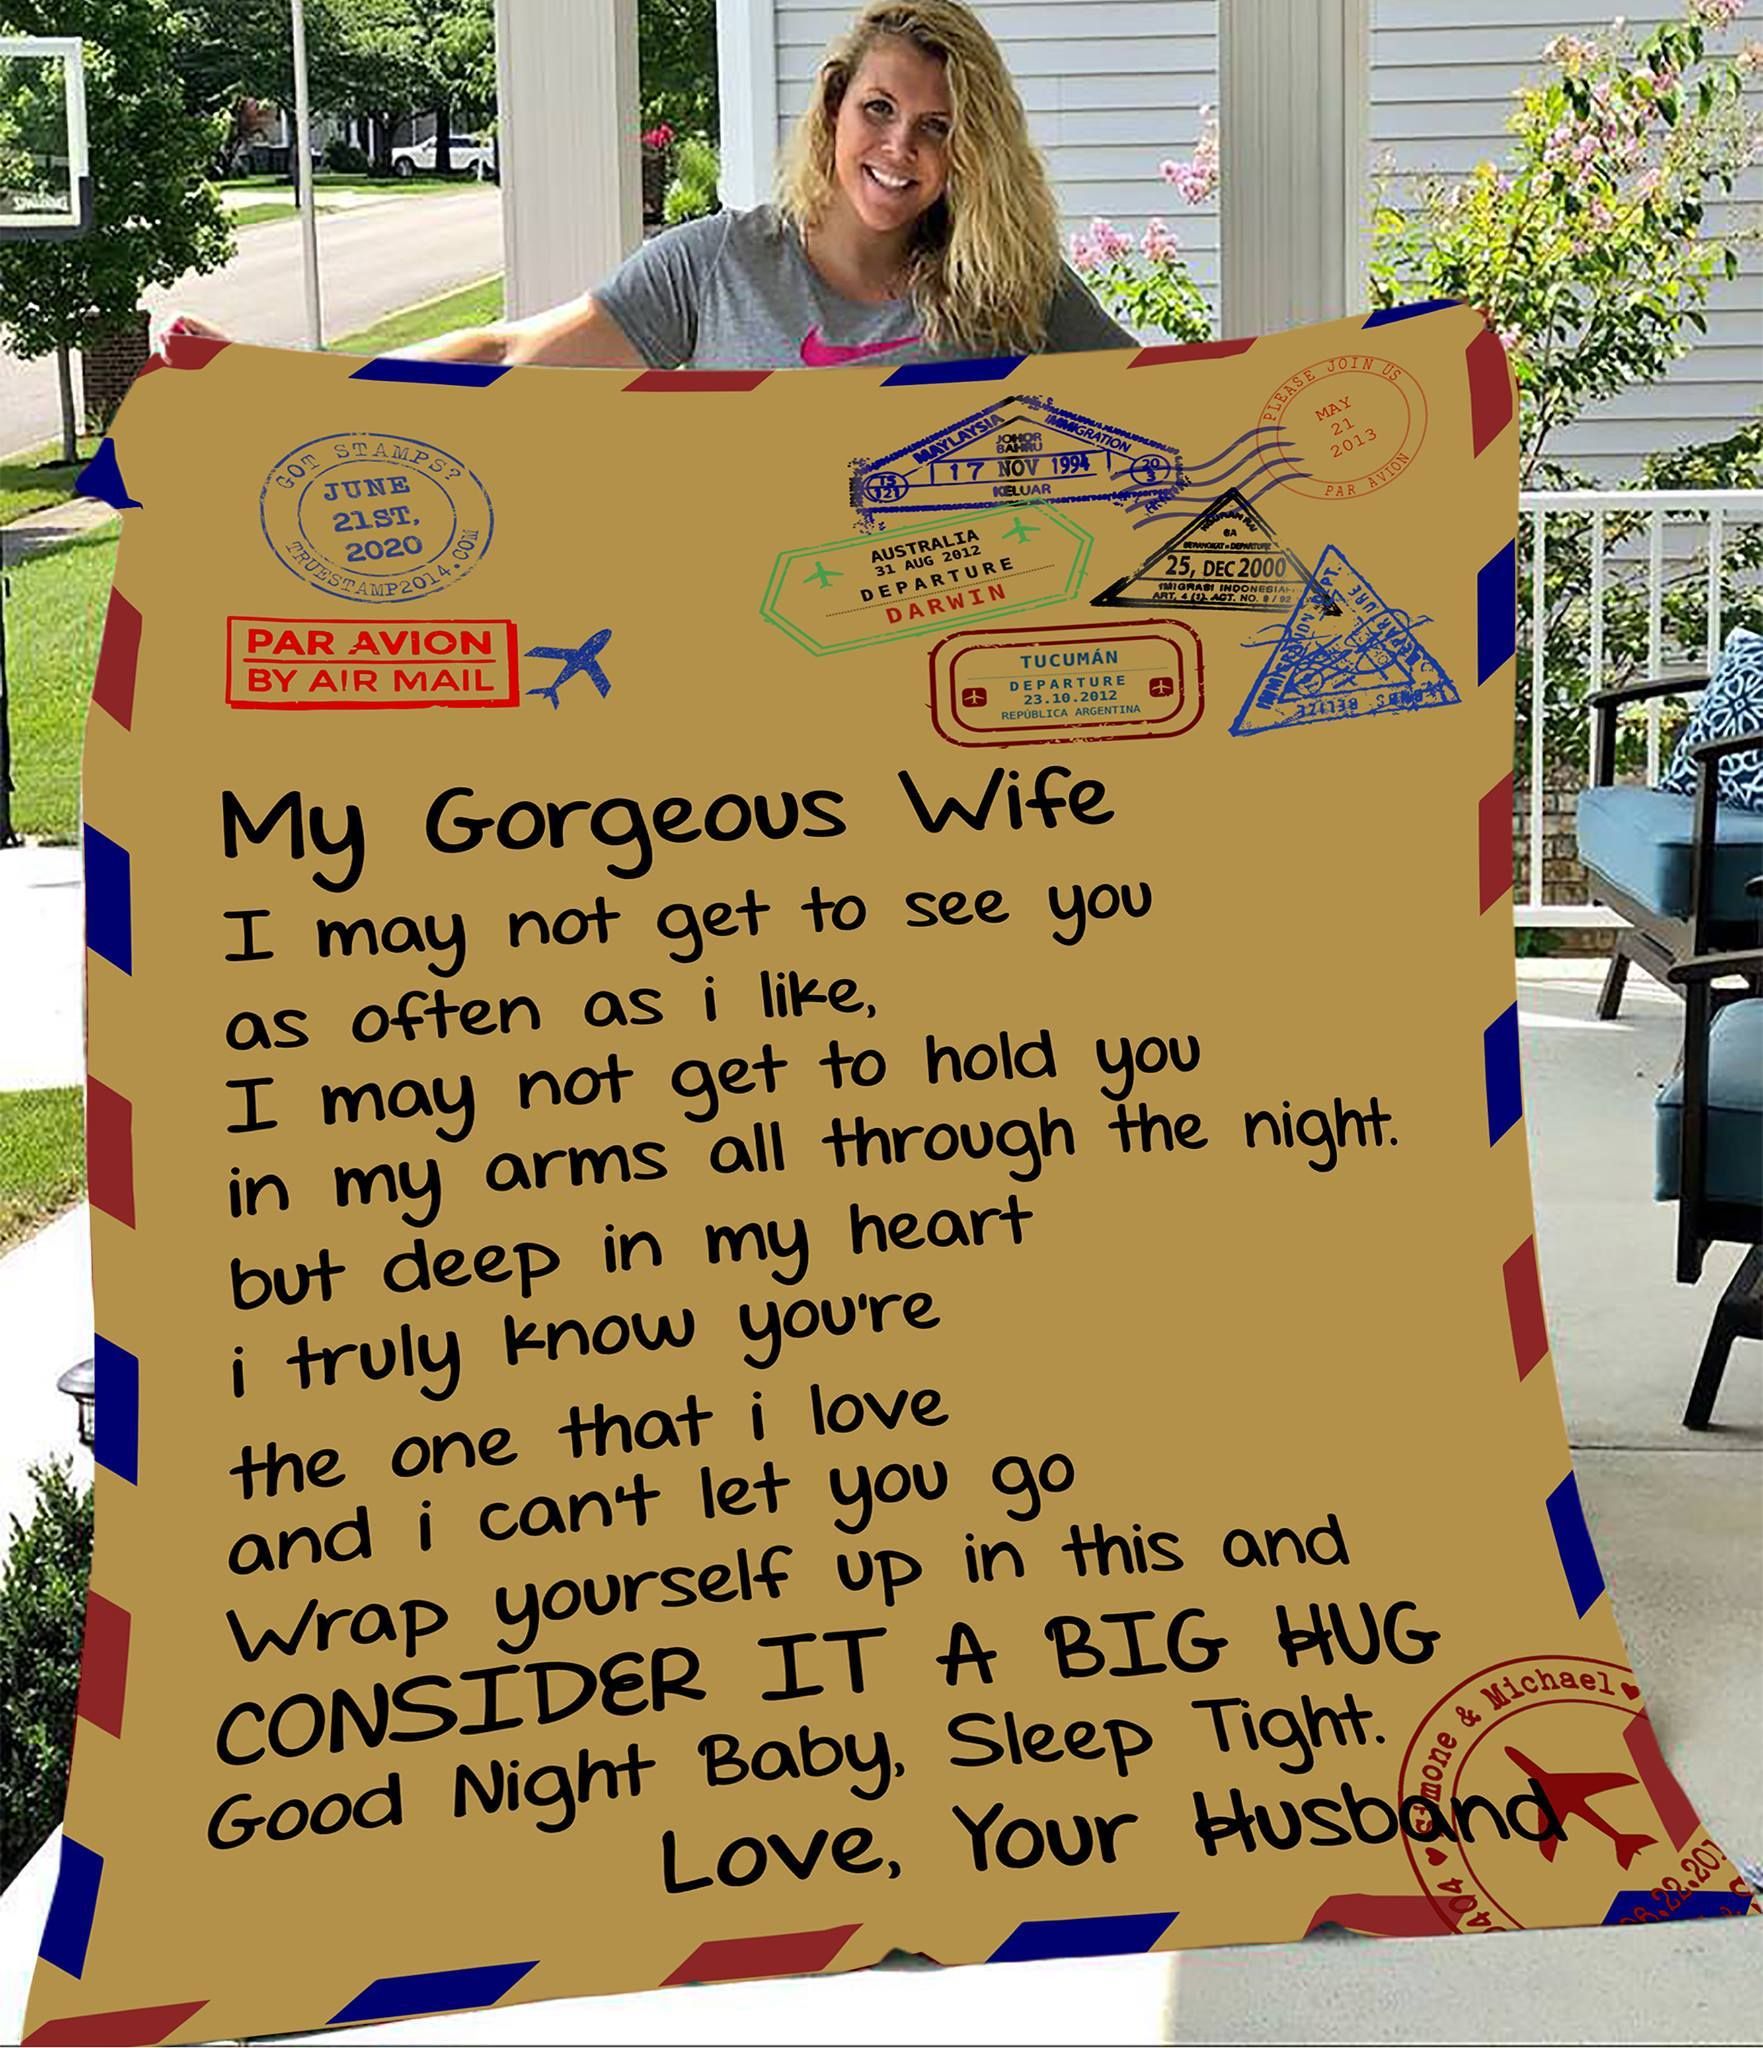 SPALDING
GOT STAMPS?
JUNE
21ST,
2020
TRUESTAMP2014.COM
PAR AVION
BY AIR MAIL
MAYLAYSIA IMMIGRATION
JOHOR
BAHRU
17 NOV 1994
KELUAR
PLEASE JOIN US
MAY
21
2013
PAR AVION
AUSTRALIA
31 AUG 2012
DEPARTURE
DARWIN
25, DEC 2000
IMIGRASI INDONESIA
ART. 4 (1). ACT. NO. 9 / 92
TUCUMÁN
DEPARTURE
23.10.2012
REPÚBLICA ARGENTINA
BELIZE
My Gorgeous Wife
I may not get to see you
as often as i like,
I may not get to hold you
in my arms all through the night.
but deep in my heart
i truly know you're
the one that i love
and i can't let you go
Wrap yourself up in this and
CONSIDER IT A BIG HUG
Good Night Baby, Sleep Tight.
Love, Your Husband
Simone & Michael